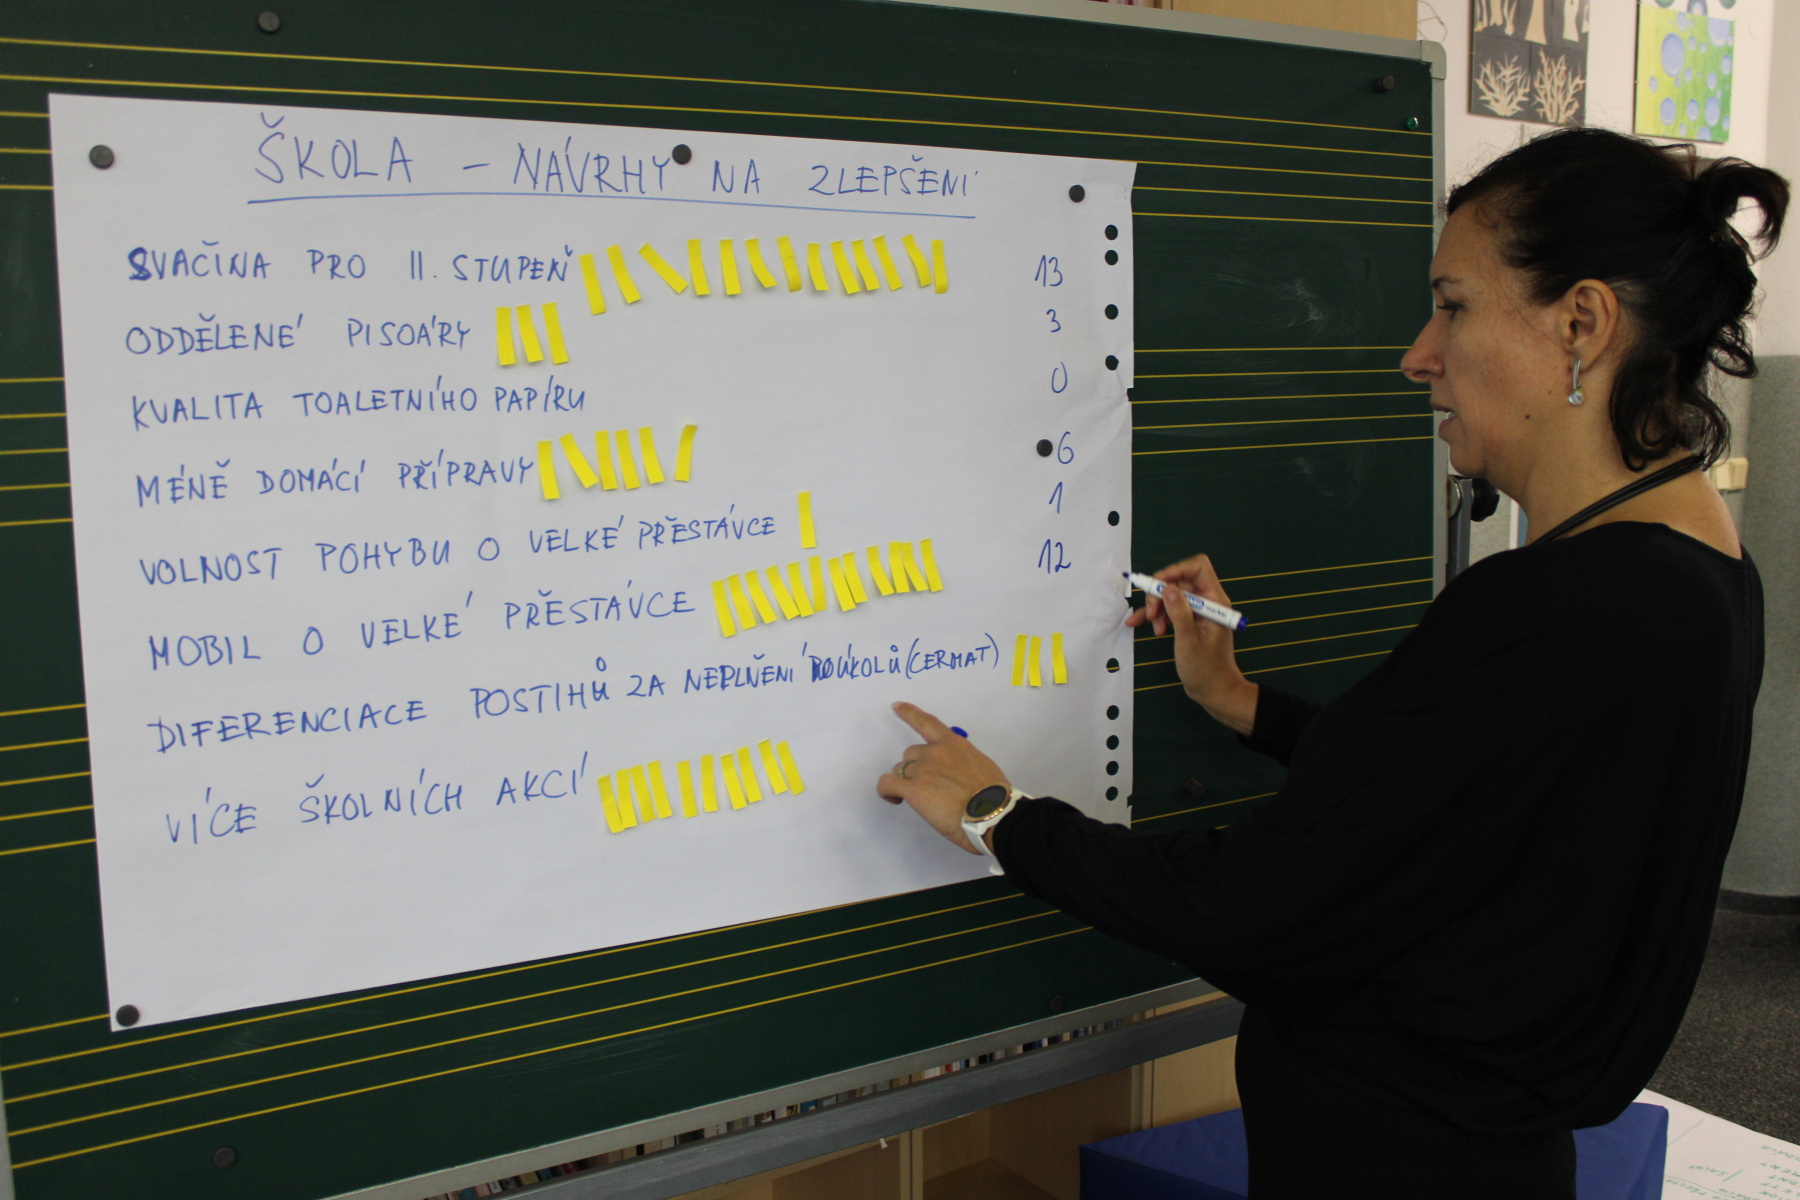 ŠKOLA - NÁVRHY NA ZLEPŠENÍ
SVAČINA PRO II. STUPEŇ 13
ODDĚLENÉ PISOÁRY 3
KVALITA TOALETNÍHO PAPÍRU 0
MÉNĚ DOMÁCÍ PŘÍPRAVY 6
VOLNOST POHYBU O VELKÉ PŘESTÁVCE 1
MOBIL O VELKÉ PŘESTÁVCE 12
DIFERENCIACE POSTIHŮ ZA NEPLNĚNÍ ÚKOLŮ (CERMAT)
VÍCE ŠKOLNÍCH AKCÍ